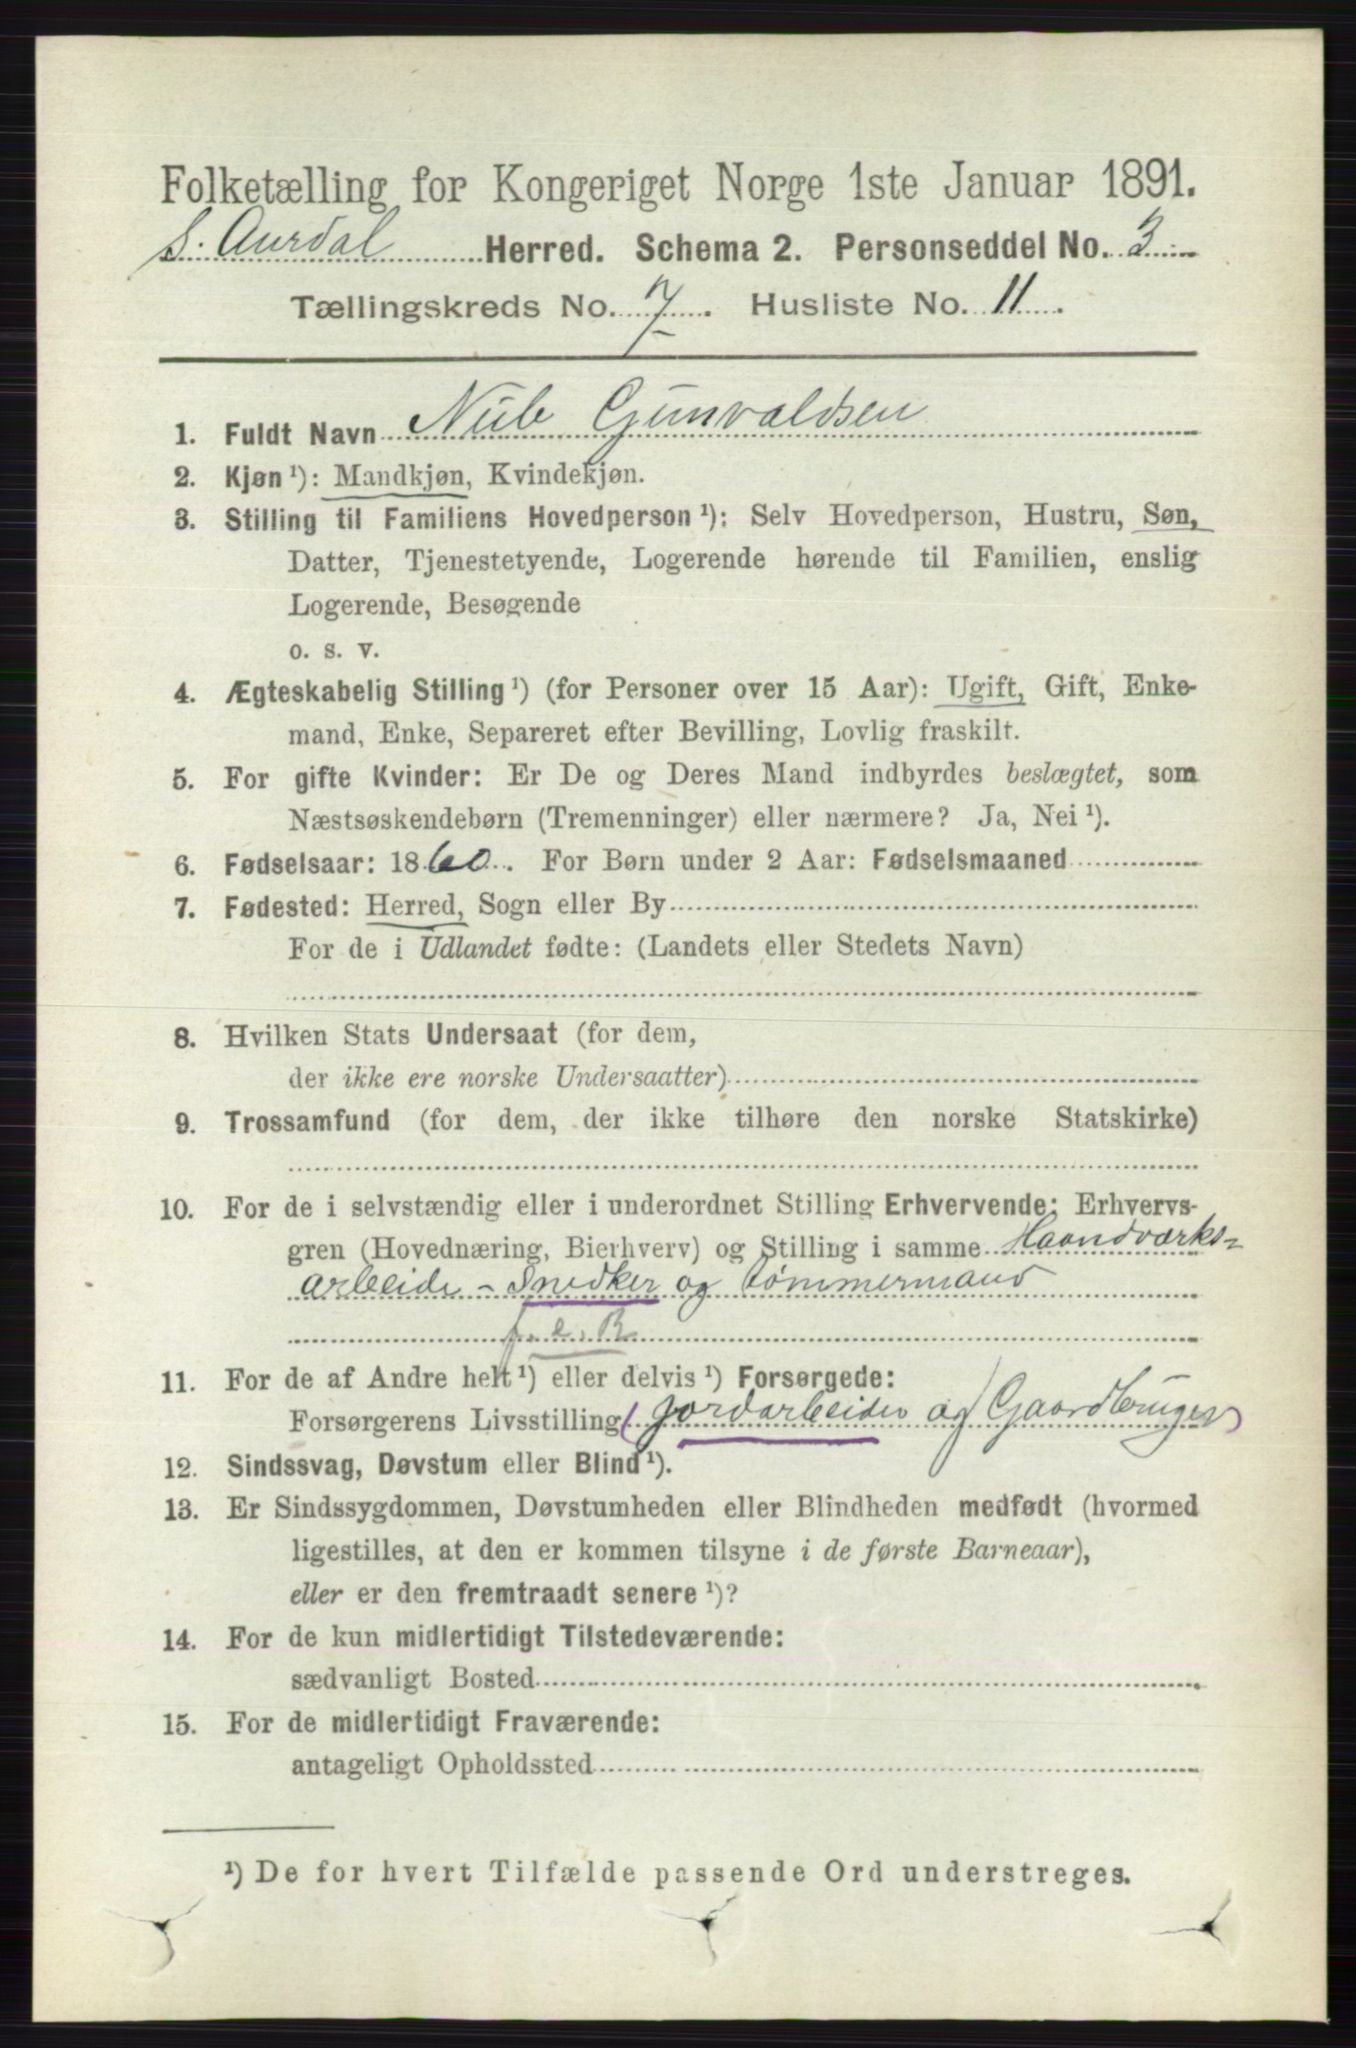 Folketælling for Kongeriget Norge 1ste Januar 1891.
S. Aurdal Herred. Schema 2. Personseddel No. 3
Tællingskreds No. 7. Husliste No. 11.
1. Fuldt Navn Nub Gunvaldsen
2. Kjøn ¹): Mandkjøn, Kvindekjøn.
3. Stilling til Familiens Hovedperson ¹): Selv Hovedperson, Hustru, Søn,
Datter, Tjenestetyende, Logerende hørende til Familien, enslig
Logerende, Besøgende
o. s. v.
4. Ægteskabelig Stilling ¹) (for Personer over 15 Aar): Ugift, Gift, Enke-
mand, Enke, Separeret efter Bevilling, Lovlig fraskilt.
5. For gifte Kvinder: Er De og Deres Mand indbyrdes beslægtet, som
Næstsøskendebørn (Tremenninger) eller nærmere? Ja, Nei ¹).
6. Fødselsaar: 1860. For Børn under 2 Aar: Fødselsmaaned
7. Fødested: Herred, Sogn eller By
For de i Udlandet fødte: (Landets eller Stedets Navn)
8. Hvilken Stats Undersaat (for dem,
der ikke ere norske Undersaatter)
9. Trossamfund (for dem, der ikke tilhøre den norske Statskirke)
10. For de i selvstændig eller i underordnet Stilling Erhvervende: Erhvervs-
gren (Hovednæring, Bierhverv) og Stilling i samme Haandværks-
arbeide - Snedker og Tømmermand
f. e. R
11. For de af Andre helt ¹) eller delvis ¹) Forsørgede:
Forsørgerens Livsstilling (Jordarbeider og Gaardbruger)
12. Sindssvag, Døvstum eller Blind ¹).
13. Er Sindssygdommen, Døvstumheden eller Blindheden medfødt (hvormed
ligestilles, at den er kommen tilsyne i de første Barneaar),
eller er den fremtraadt senere ¹)?
14. For de kun midlertidigt Tilstedeværende:
sædvanligt Bosted
15. For de midlertidigt Fraværende:
antageligt Opholdssted
¹) De for hvert Tilfælde passende Ord understreges.